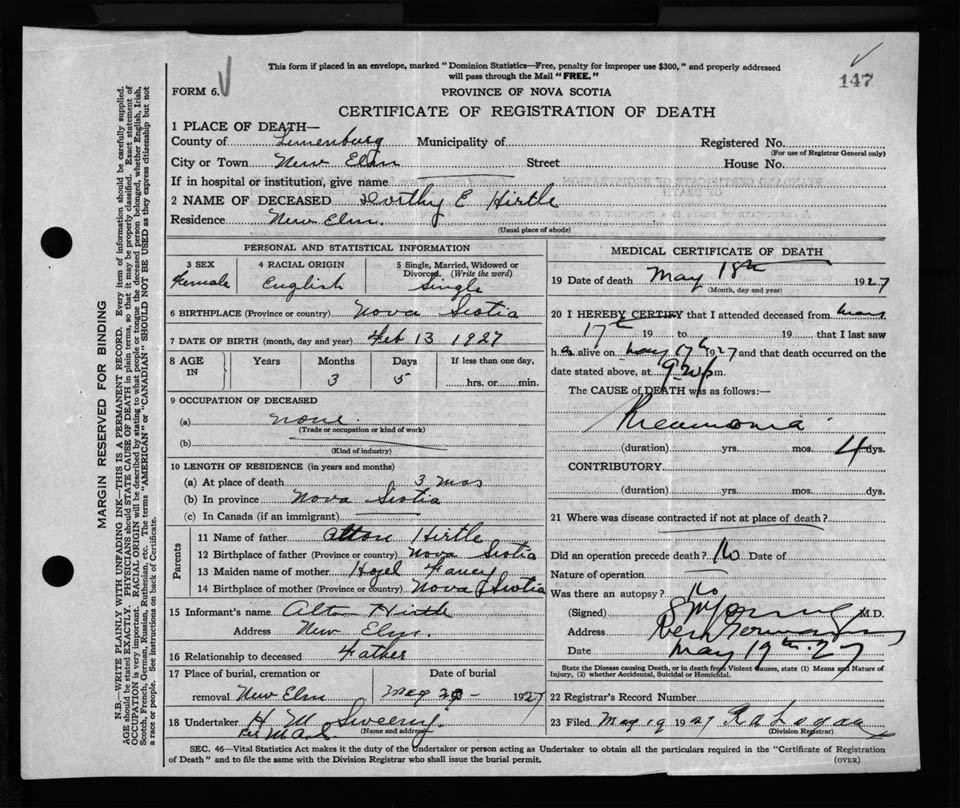 This form if placed in an envelope, marked "Dominion Statistics—Free, penalty for improper use $300," and properly addressed
will pass through the Mail "FREE."
147
FORM 6.
PROVINCE OF NOVA SCOTIA
CERTIFICATE OF REGISTRATION OF DEATH
1 PLACE OF DEATH—
County of Lunenburg Municipality of Registered No.
(For use of Registrar General only)
City or Town New Elm Street House No.
If in hospital or institution, give name
2 NAME OF DECEASED Dorthy E Hirtle
Residence New Elm.
(Usual place of abode)
PERSONAL AND STATISTICAL INFORMATION
3 SEX 4 RACIAL ORIGIN 5 Single, Married, Widowed or
Divorced. (Write the word)
Female English Single
6 BIRTHPLACE (Province or country) Nova Scotia
7 DATE OF BIRTH (month, day and year) Feb 13 1927
8 AGE IN Years Months Days If less than one day,
3 5 hrs. or min.
9 OCCUPATION OF DECEASED
(a) none
(Trade or occupation or kind of work)
(b)
(Kind of industry)
10 LENGTH OF RESIDENCE (in years and months)
(a) At place of death 3 mos
(b) In province Nova Scotia
(c) In Canada (if an immigrant)
Parents
11 Name of father Alton Hirtle
12 Birthplace of father (Province or country) Nova Scotia
13 Maiden name of mother Hazel Fancy
14 Birthplace of mother (Province or country) Nova Scotia
15 Informant's name Alton Hirtle
Address New Elm.
16 Relationship to deceased Father
17 Place of burial, cremation or Date of burial
removal New Elm May 1927
18 Undertaker H M Sweeny.
(Name and address)
Per
MEDICAL CERTIFICATE OF DEATH
19 Date of death May 18th 1927
(Month, day and year)
20 I HEREBY CERTIFY that I attended deceased from May
17th 19 to 19 that I last saw
h alive on May 17th 1927 and that death occurred on the
date stated above, at m.
The CAUSE of DEATH was as follows:—
Pneumonia
(duration) yrs. mos. 4 dys.
CONTRIBUTORY
(duration) yrs. mos. dys.
21 Where was disease contracted if not at place of death?
Did an operation precede death? No Date of
Nature of operation
Was there an autopsy? No
(Signed) M.D.
Address
Date May 19th 27
State the Disease causing Death, or in death from Violent Causes, state (1) Means and Nature of
Injury, (2) whether Accidental, Suicidal or Homicidal.
22 Registrar's Record Number
23 Filed May 19 1927
(Division Registrar)
SEC. 46—Vital Statistics Act makes it the duty of the Undertaker or person acting as Undertaker to obtain all the particulars required in the "Certificate of Registration
of Death" and to file the same with the Division Registrar who shall issue the burial permit.
(OVER)
MARGIN RESERVED FOR BINDING
N.B.—WRITE PLAINLY WITH UNFADING INK—THIS IS A PERMANENT RECORD. Every item of information should be carefully supplied.
AGE should be stated EXACTLY. PHYSICIANS should STATE CAUSE OF DEATH in plain terms, so that it may be properly classified. Exact statement of
OCCUPATION is very important. RACIAL ORIGIN will be described by stating to what people or tongue the deceased person belonged, whether English, Irish,
Scotch, French, German, Russian, Ruthenian, etc. The terms "AMERICAN" or "CANADIAN" SHOULD NOT BE USED as they express citizenship but not
a race or people. See instructions on back of Certificate.